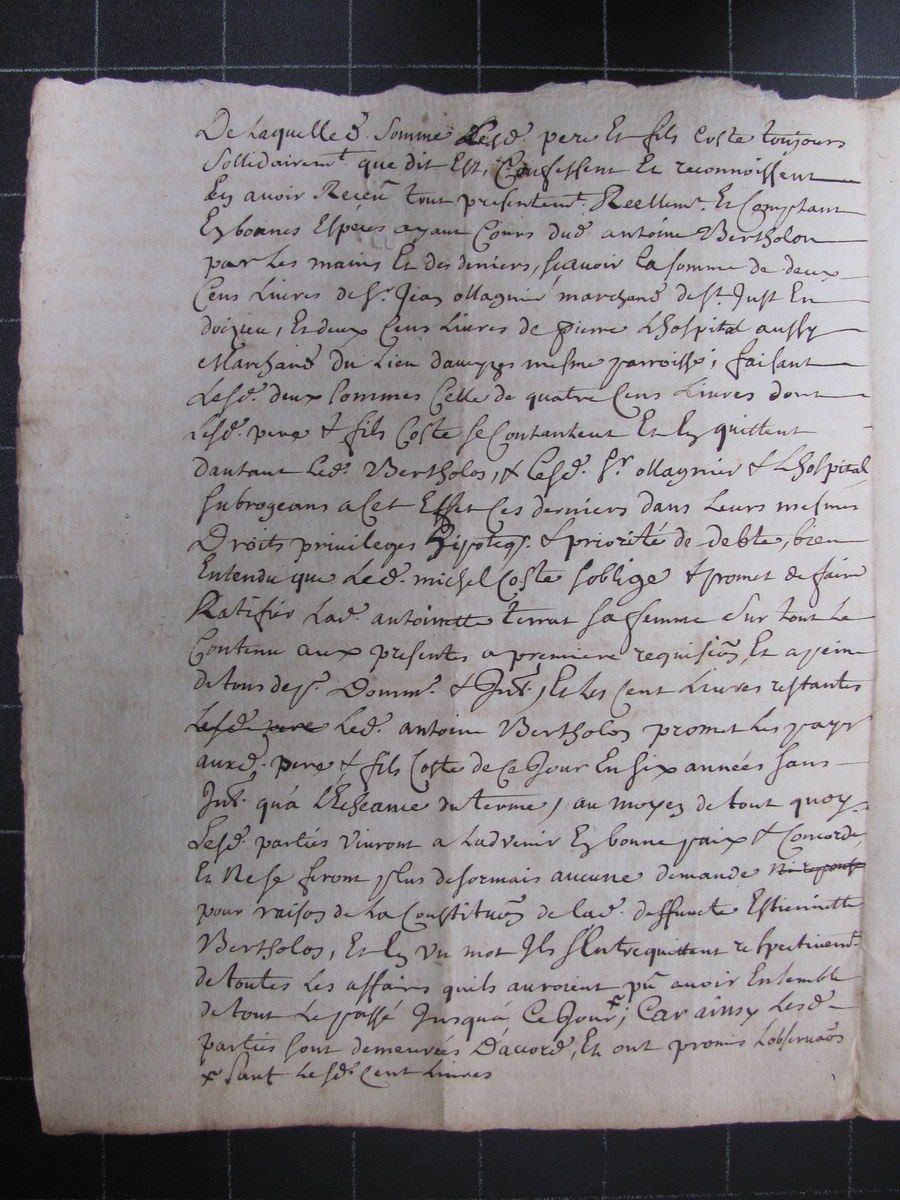 De Laquelle d. Somme Lesd. pere Et fils Coste toujours
Sollidairemt. que dit Est, Confessent Et reconnoissent
En avoir Receu tout presentemt. Reellemt. Et Comptant
En bonnes Espeses ayant Cours dud. antoine Bertholon
par Les mains Et des deniers, scavoir La somme de deux
Cens Livres de Sr. Jean ollagnier marchand de St. Just En
doizieu, Et deux Cens Livres de pierre Lhospital aussy
Marchand du Lieu daveyzes mesme parroisse; faisant
Lesd. deux sommes Celle de quatre Cens Livres dont
Lesd. pere & fils Coste se Contantent Et En quittent
dautant Led. Bertholon, & Lesd. Sr. ollagnier & Lhospital
subrogeans a Cet Effet Ces derniers dans Leurs mesmes
Droits privileges hipoteqs. & priorité de debte, bien
Entendu que Led. michel Coste soblige & promet de faire
Ratifier Lad. antoinette terrat sa femme Sur tout Le
Contenu aux presentes a premiere requision, Et a peine
de tous desp. Domm. & Int. Et Les Cent Livres restantes
Lesd. pere Led. antoine Bertholon promet Les payer
auxd. pere & fils Coste de Ce Jour En six années sans
Int. qua L'Escheance du terme, au moyen de tout quoy
Lesd. parties vivront a Ladvenir En bonne paix & Concorde,
Et Ne se feront plus desormais aucune demande
pour raison de La Constituon de lad. deffuncte Estiennette
Bertholon, Et En un mot Ils sEntrequittent respectivemt.
de toutes Les affaires quils auroient pu avoir Ensemble
de tout Le passé Jusqua Ce Jour; Car ainsy Lesd.
parties sont demeurées D'accord, Et ont promis Lobservaon
x Sauf Lesd. Cent Livres